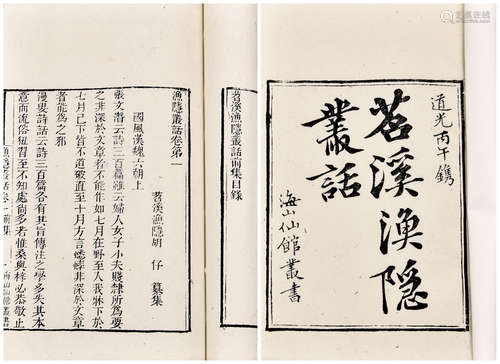 道光丙午鐫
苕溪漁隱
叢話
海山仙館叢書
苕溪漁隱叢話前集目錄
漁隱叢話卷第一
苕溪漁隱胡 仔 纂集
國風漢魏六朝上
張文潛云詩三百篇雖云婦人女子小夫賤隸所為要
之非深於文章者不能作如七月在野至入我牀下於
七月已下皆不道破直至十月方言蟋蟀非深於文章
者能為之邪
漫叟詩話云詩三百篇各有其旨傳注之學多失其本
意而流俗狃習至不知處尚多者惟桑與梓必恭敬止